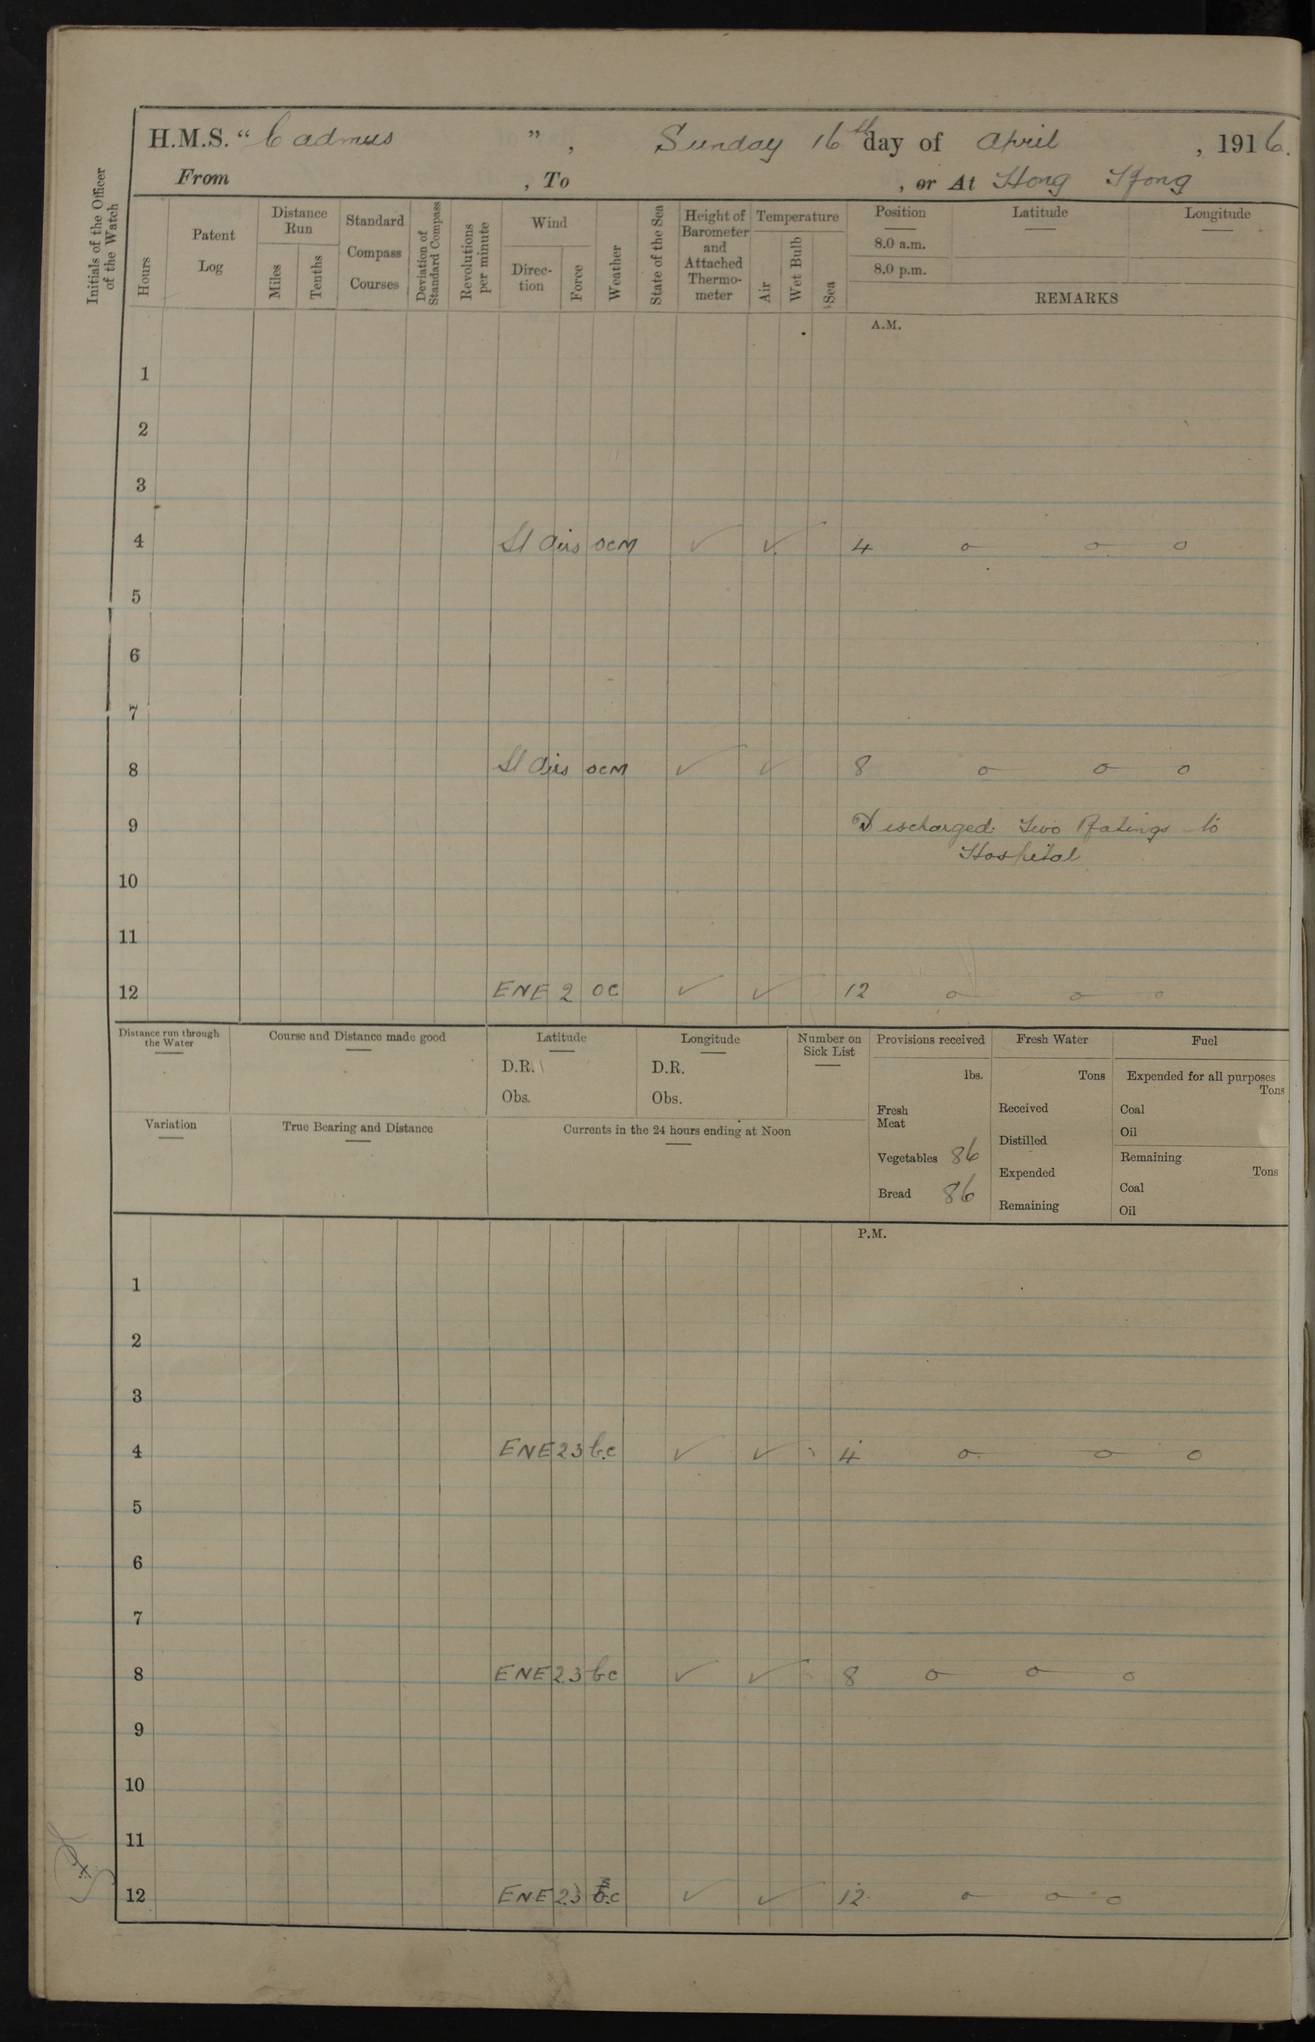 H.M.S. " Cadmus ", Sunday 16th day of April, 1916.
From , To , or At Hong Kong
Initials of the Officer of the Watch
Hours
Patent Log
Distance Run
Miles
Tenths
Standard Compass Courses
Deviation of Standard Compass
Revolutions per minute
Wind
Direc-tion
Force
Weather
State of the Sea
Height of Barometer and Attached Thermo-meter
Temperature
Air
Wet Bulb
Sea
Position
8.0 a.m.
8.0 p.m.
Latitude
Longitude
REMARKS
A.M.
1
2
3
4 Lt Airs ocm ✓ ✓ 4 o o o
5
6
7
8 Lt Airs ocm ✓ ✓ 8 o o o
9 Discharged Two Ratings to
Hospital
10
11
12 ENE 2 oc ✓ ✓ 12 o o o
Distance run through the Water
Course and Distance made good
Latitude
D.R.
Obs.
Longitude
D.R.
Obs.
Number on Sick List
Variation
True Bearing and Distance
Currents in the 24 hours ending at Noon
Provisions received
lbs.
Fresh Meat
Vegetables 86
Bread 86
Fresh Water
Tons
Received
Distilled
Expended
Remaining
Fuel
Expended for all purposes
Tons
Coal
Oil
Remaining
Tons
Coal
Oil
P.M.
1
2
3
4 ENE 2.3 b.c ✓ ✓ 4 o o o
5
6
7
8 ENE 2.3 bc ✓ ✓ 8 o o o
9
10
11
12 ENE 2.3 b.c ✓ ✓ 12 o o o